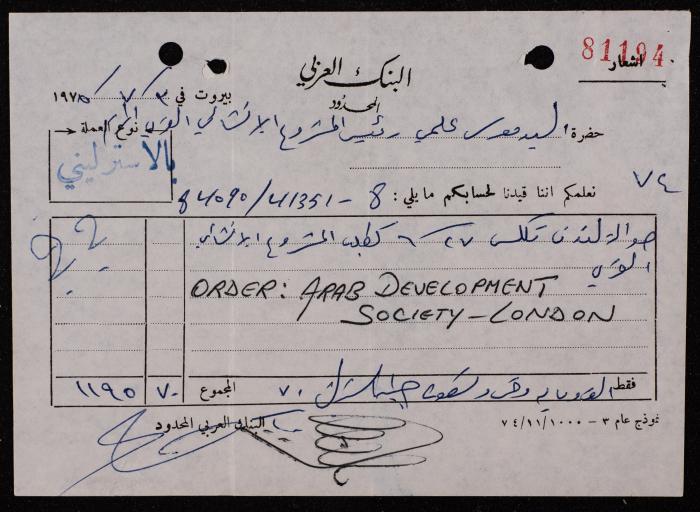 81194
اشعار
البنك العربي
المحدود
بيروت في ٣ / ٧ / ١٩٧٥
حضرة السيد موسى علمي رئيس المشروع الانشائي العربي
نوع العملة
بالاسترليني
٧٤
نعلمكم اننا قيدنا لحسابكم ما يلي: 84090/41351-8
حوالة لندن تلكس ٢٧/٦ كطلب المشروع الانشائي
العربي
ORDER: ARAB DEVELOPMENT
SOCIETY-LONDON
فقط الف ومائة وخمس وتسعون جنيه استرليني ٧٠
المجموع
٧٠
١١٩٥
البنك العربي المحدود
نموذج عام ٣ - ٧٤/١١/١٠٠٠